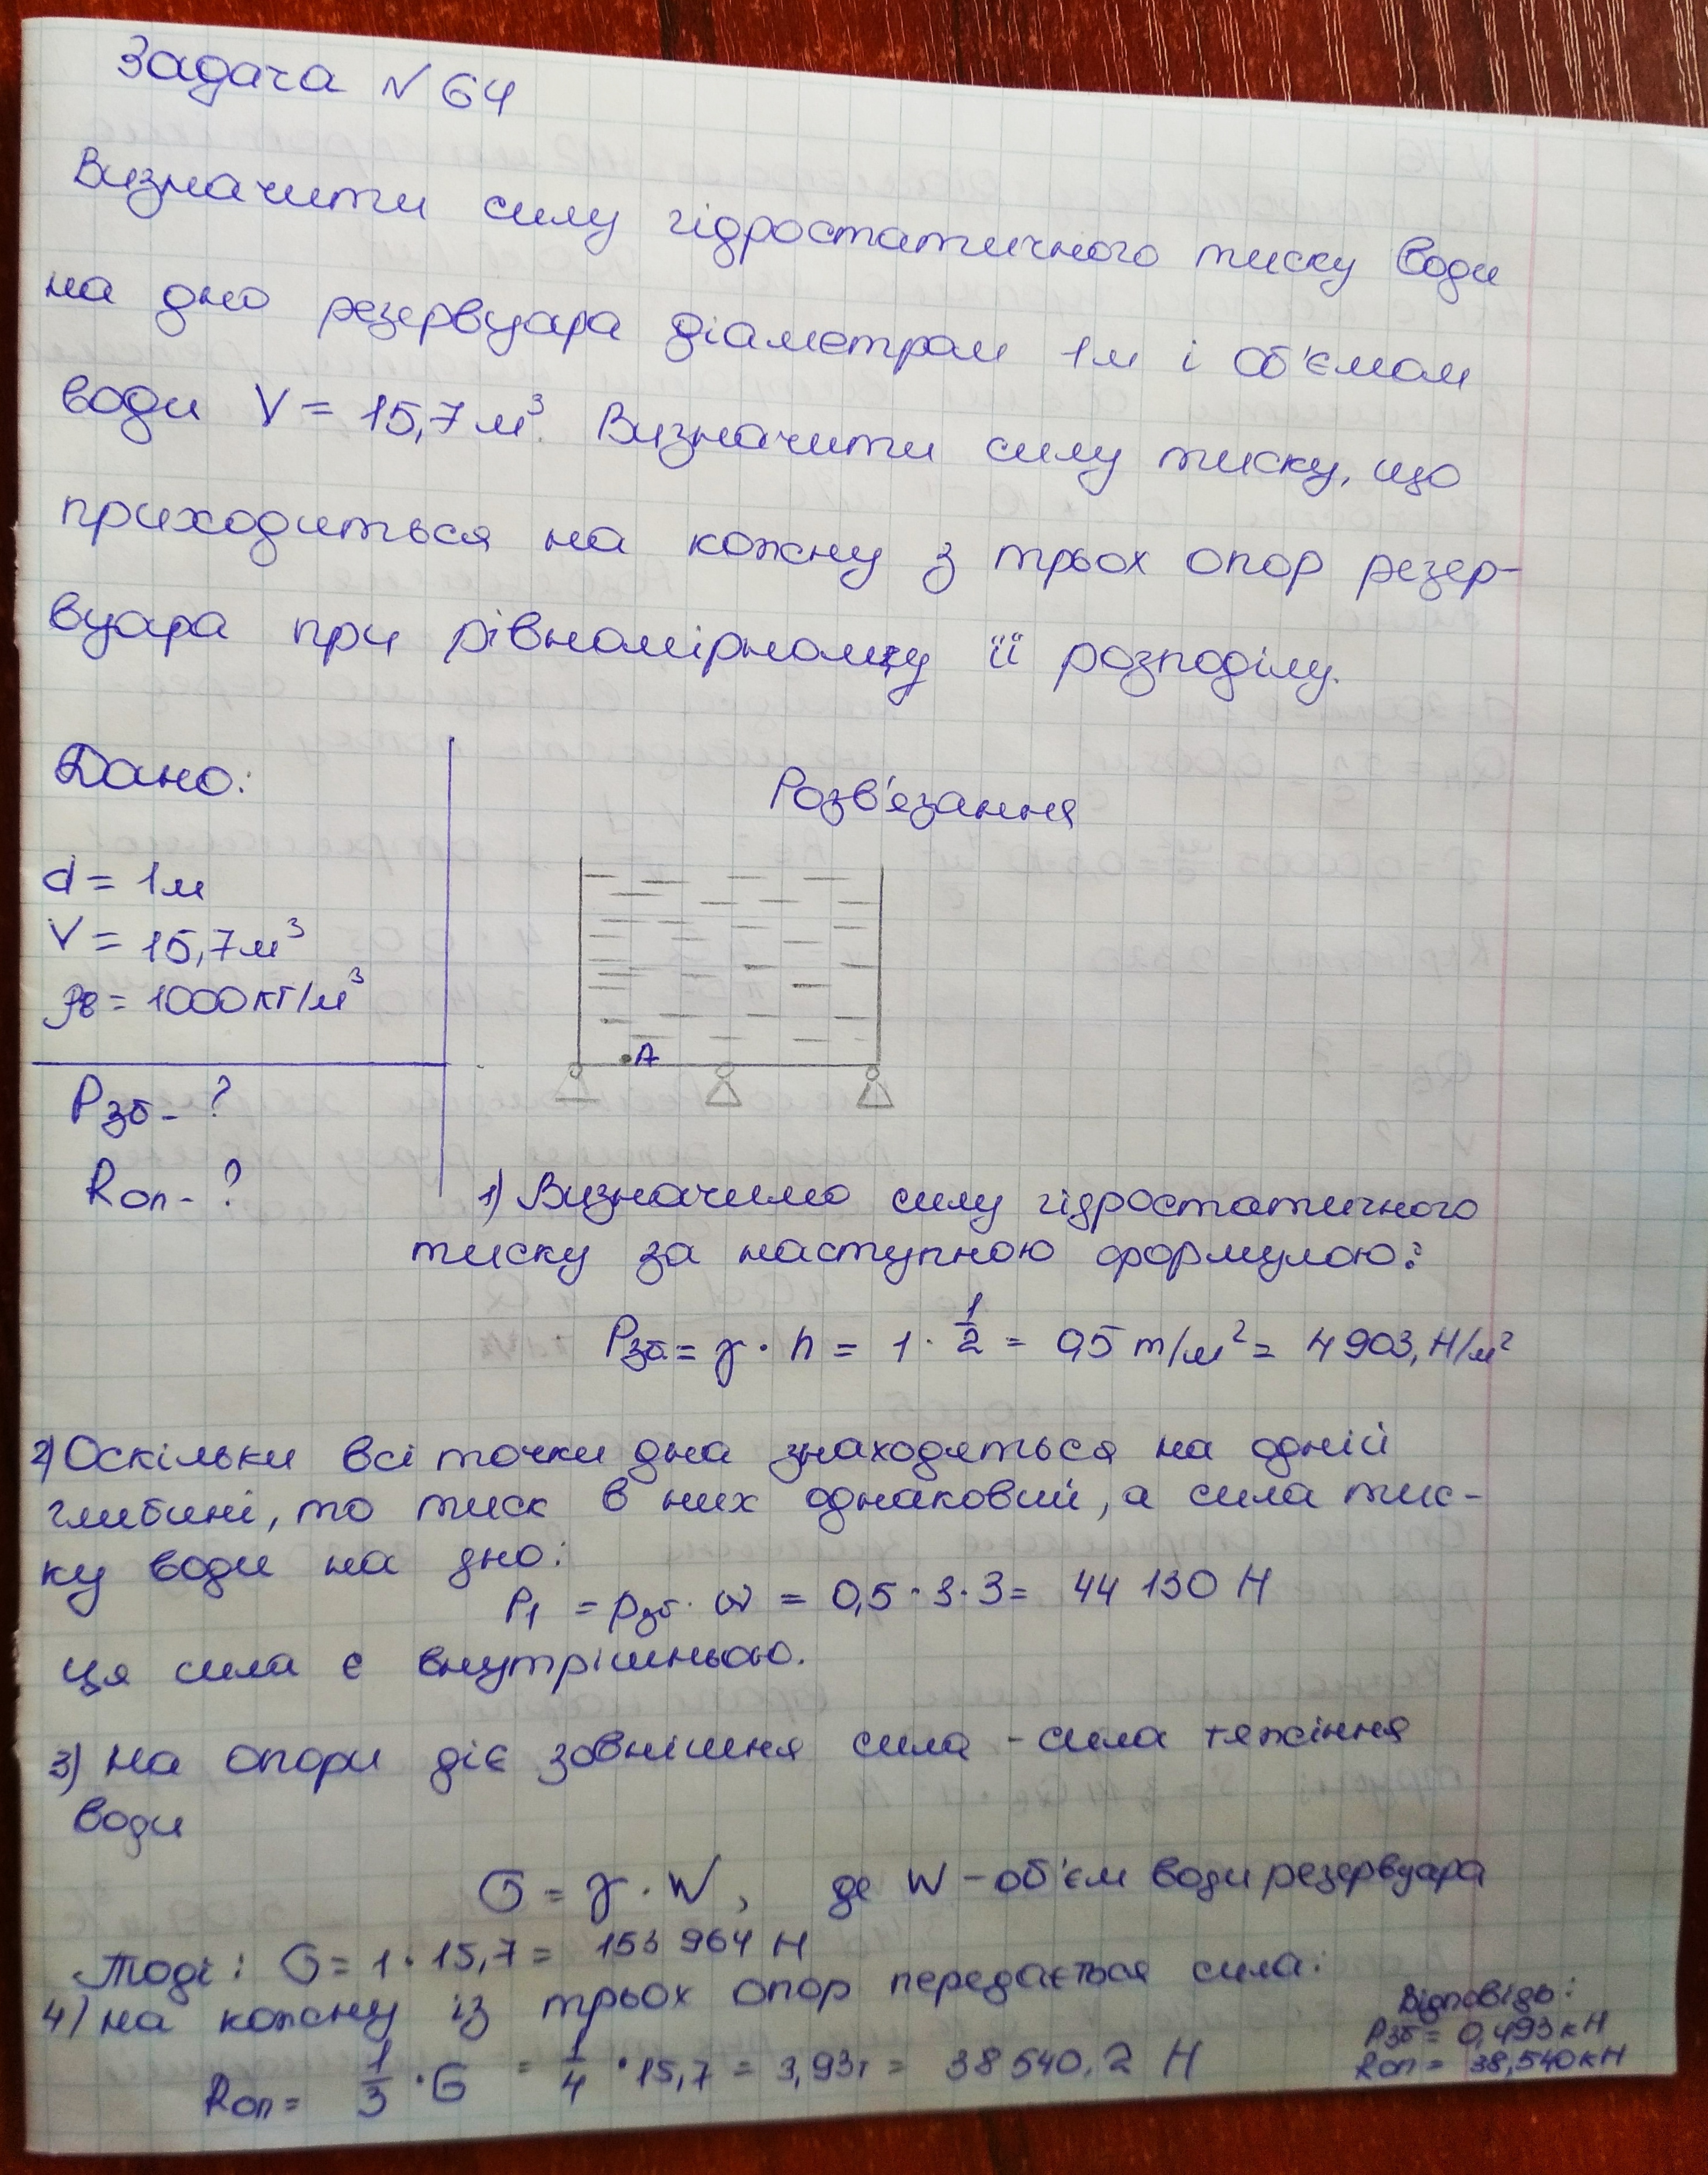 Задача №64
Визначити силу гідростатичного тиску води
на дно резервуара діаметром 1м і об'ємом
води V = 15,7 м³. Визначити силу тиску, що
приходиться на кожну з трьох опор резер-
вуара при рівномірному її розподілу.
Дано:
Розв'язання
d = 1м
V = 15,7м³
ρв = 1000кг/м³
А
Pзб - ?
Rоп - ?
1) Визначимо силу гідростатичного
тиску за наступною формулою:
Pзб = γ · h = 1 · 1/2 = 0,5 т/м² = 4903, Н/м²
2) Оскільки всі точки дна знаходяться на одній
глибині, то тиск в них однаковий, а сила тис-
ку води на дно:
P₁ = pзб · ω = 0,5 · 3 · 3 = 44 130 Н
ця сила є внутрішньою.
3) На опори діє зовнішня сила - сила тяжіння
води
G = γ · W, де W - об'єм води резервуара
Тоді: G = 1 · 15,7 = 153 964 Н
4) на кожну із трьох опор передається сила:
Rоп = 1/3 · G = 1/4 · 15,7 = 3,93т = 38 540,2 Н
Відповідь:
Pзб = 0,493кН
Rоп = 38,540кН